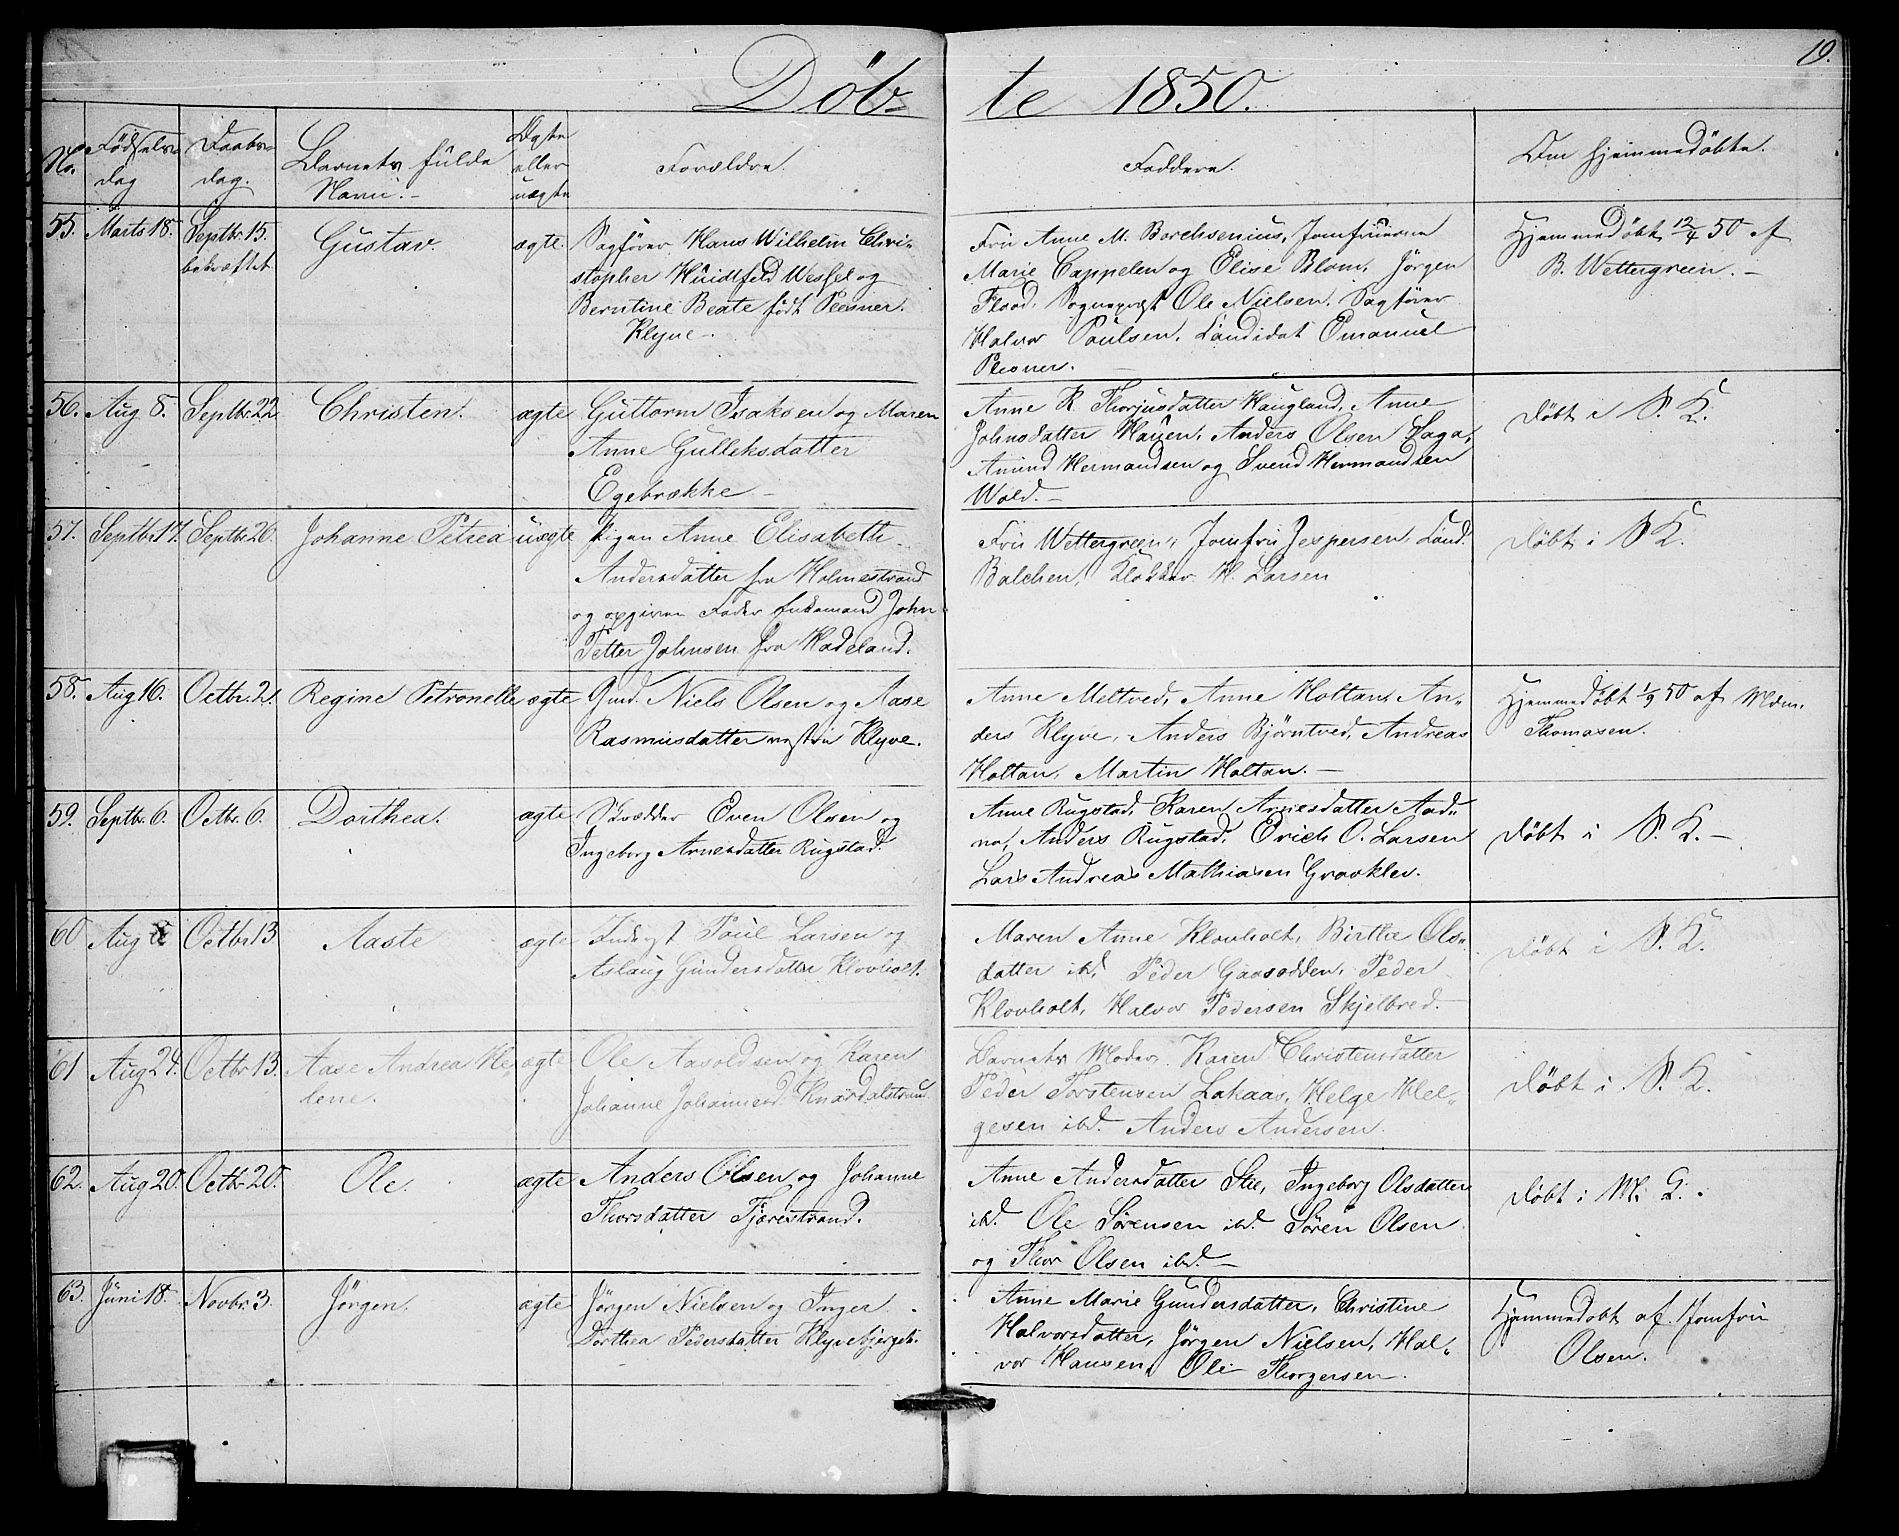 19.
Döb-te 1850.
No. Fødselsdag Daabsdag. Barnets fulde Navn. Ægte eller uægte Forældre. Faddere. Om hjemmedøbte.
55. Marts 18. Septbr. 15. bekræftet Gustav ægte. Sagfører Hans Wilhelm Chri-
stopher Huidtfeld Wessel og
Berntine Beate født Plesner.
Klyve.
Fru Anne M. Borchsenius, Jomfruerne
Marie Cappelen og Elise Blom, Jörgen
Flood, Sognepræst Ole Nielsen, Sagfører
Halvor Paulsen, Candidat Emanuel
Plesner.
Hjemmedøbt 12/4 50 af
B. Wettergreen. -
56. Aug 8. Septbr. 22 Christen. ægte Guttorm Isaksen og Maren
Anne Gulleksdatter
Egebrække -
Anne K. Thorjusdatter Haugland, Anne
Johnsdatter Hauen, Anders Olsen Haga,
Amund Hermandsen og Svend Hermandsen
Wold. -
døbt i S. K.
57. Septbr. 17. Septbr. 26. Johanne Petrea uægte Pigen Anne Elisabeth
Andersdatter fra Holmestrand
og opgiven Fader Enkemand John
Petter Johnsen fra Hadeland.
Fru Wettergreen, Jomfru Jespersen, Cand.
Balchen, Klokker H. Larsen
døbt i S K.
58. Aug 16. Octbr. 2. Regine Petronelle ægte Gmd. Niels Olsen og Aase
Rasmusdatter vestre Klyve.
Anne Meltved, Anne Holtan, An-
ders Klyve, Anders Björntved, Andreas
Holtan, Martin Holtan. -
Hjemmedøbt 1/9 50 af Mdm.
Thomasen.
59. Septbr. 6. Octbr. 6. Dorthea. ægte Skrædder Even Olsen og
Ingeborg Arnesdatter Rugstad.
Anne Rugstad, Karen Arnesdatter Aad-
nes, Anders Rugstad, Erich O. Larsen
Lars Andreas Mathiasen Graaklev.
døbt i S. K. -
60 Aug Octbr. 13 Aaste ægte Inderst Poul Larsen og
Aslaug Gundersdatter Klovholt.
Maren Anne Klovholt, Birthe Ols-
datter ibd. Peder Gaasodden, Peder
Klovholt, Halvor Pedersen Skjelbred.
døbt i S. K.
61 Aug 24. Octbr. 13. Aase Andrea He-
lene. ægte Ole Aasoldsen og Karen
Johanne Johannesd. Knardalstrand
Barnets Moder, Karen Christensdatter
Peder Torstensen Lakaas, Helge Hel-
gesen ibd. Anders Andersen.
døbt i S. K.
62. Aug 20. Octbr. 20. Ole. ægte Anders Olsen og Johanne
Thorsdatter Tjærestrand.
Anne Andersdatter Stie, Ingeborg Olsdatter
ibd. Ole Sörensen ibd. Sören Olsen
og Thor Olsen ibd. -
døbt i M. K.
63. Juni 18. Novbr. 3. Jörgen. ægte Jörgen Nielsen og Inger
Dorthea Pedersdatter Klyvebjerget.
Anne Marie Gundersdatter, Christine
Halvorsdatter, Jörgen Nielsen, Hal-
vor Hansen, Ole Thorgersen.
Hjemmedøbt af Jomfru
Olsen.